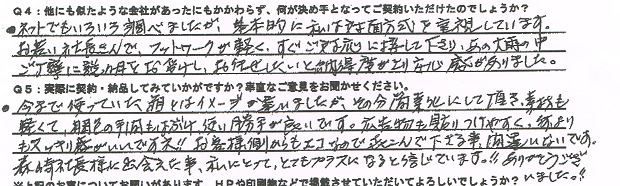 Q4：他にも似たような会社があったにもかかわらず、何が決め手となってご契約いただけたのでしょうか？
●ネットでもいろいろ調べましたが、基本的に私は対面方式を重視しています。
お若い社長さんで、フットワークが軽く、すぐご対応に接して下り、あの大雨の中
ご丁寧に説明をお受けし、お任せしたいと納得度が上り安心感がありました。
Q5：実際に契約・納品してみていかがですか？率直なご意見をお聞かせください。
●今まで使っていた箱とはイメージが違いましたが、その分簡素化にして頂き、素材も
軽くて、使い勝手が良いです。広告物も貼りつけやすく、何より
もスッキリ感がいいですネ!! お客様側からもエコなので喜こんで下さる事、間違いないです。
森崎社長様に出会えた事、私にとって、とてもプラスになると信じています。!! ありがとうござ
いました。!!
※上記のお声についてお願いがあります。HPや印刷物などで掲載させていただいてよろしいでしょうか？